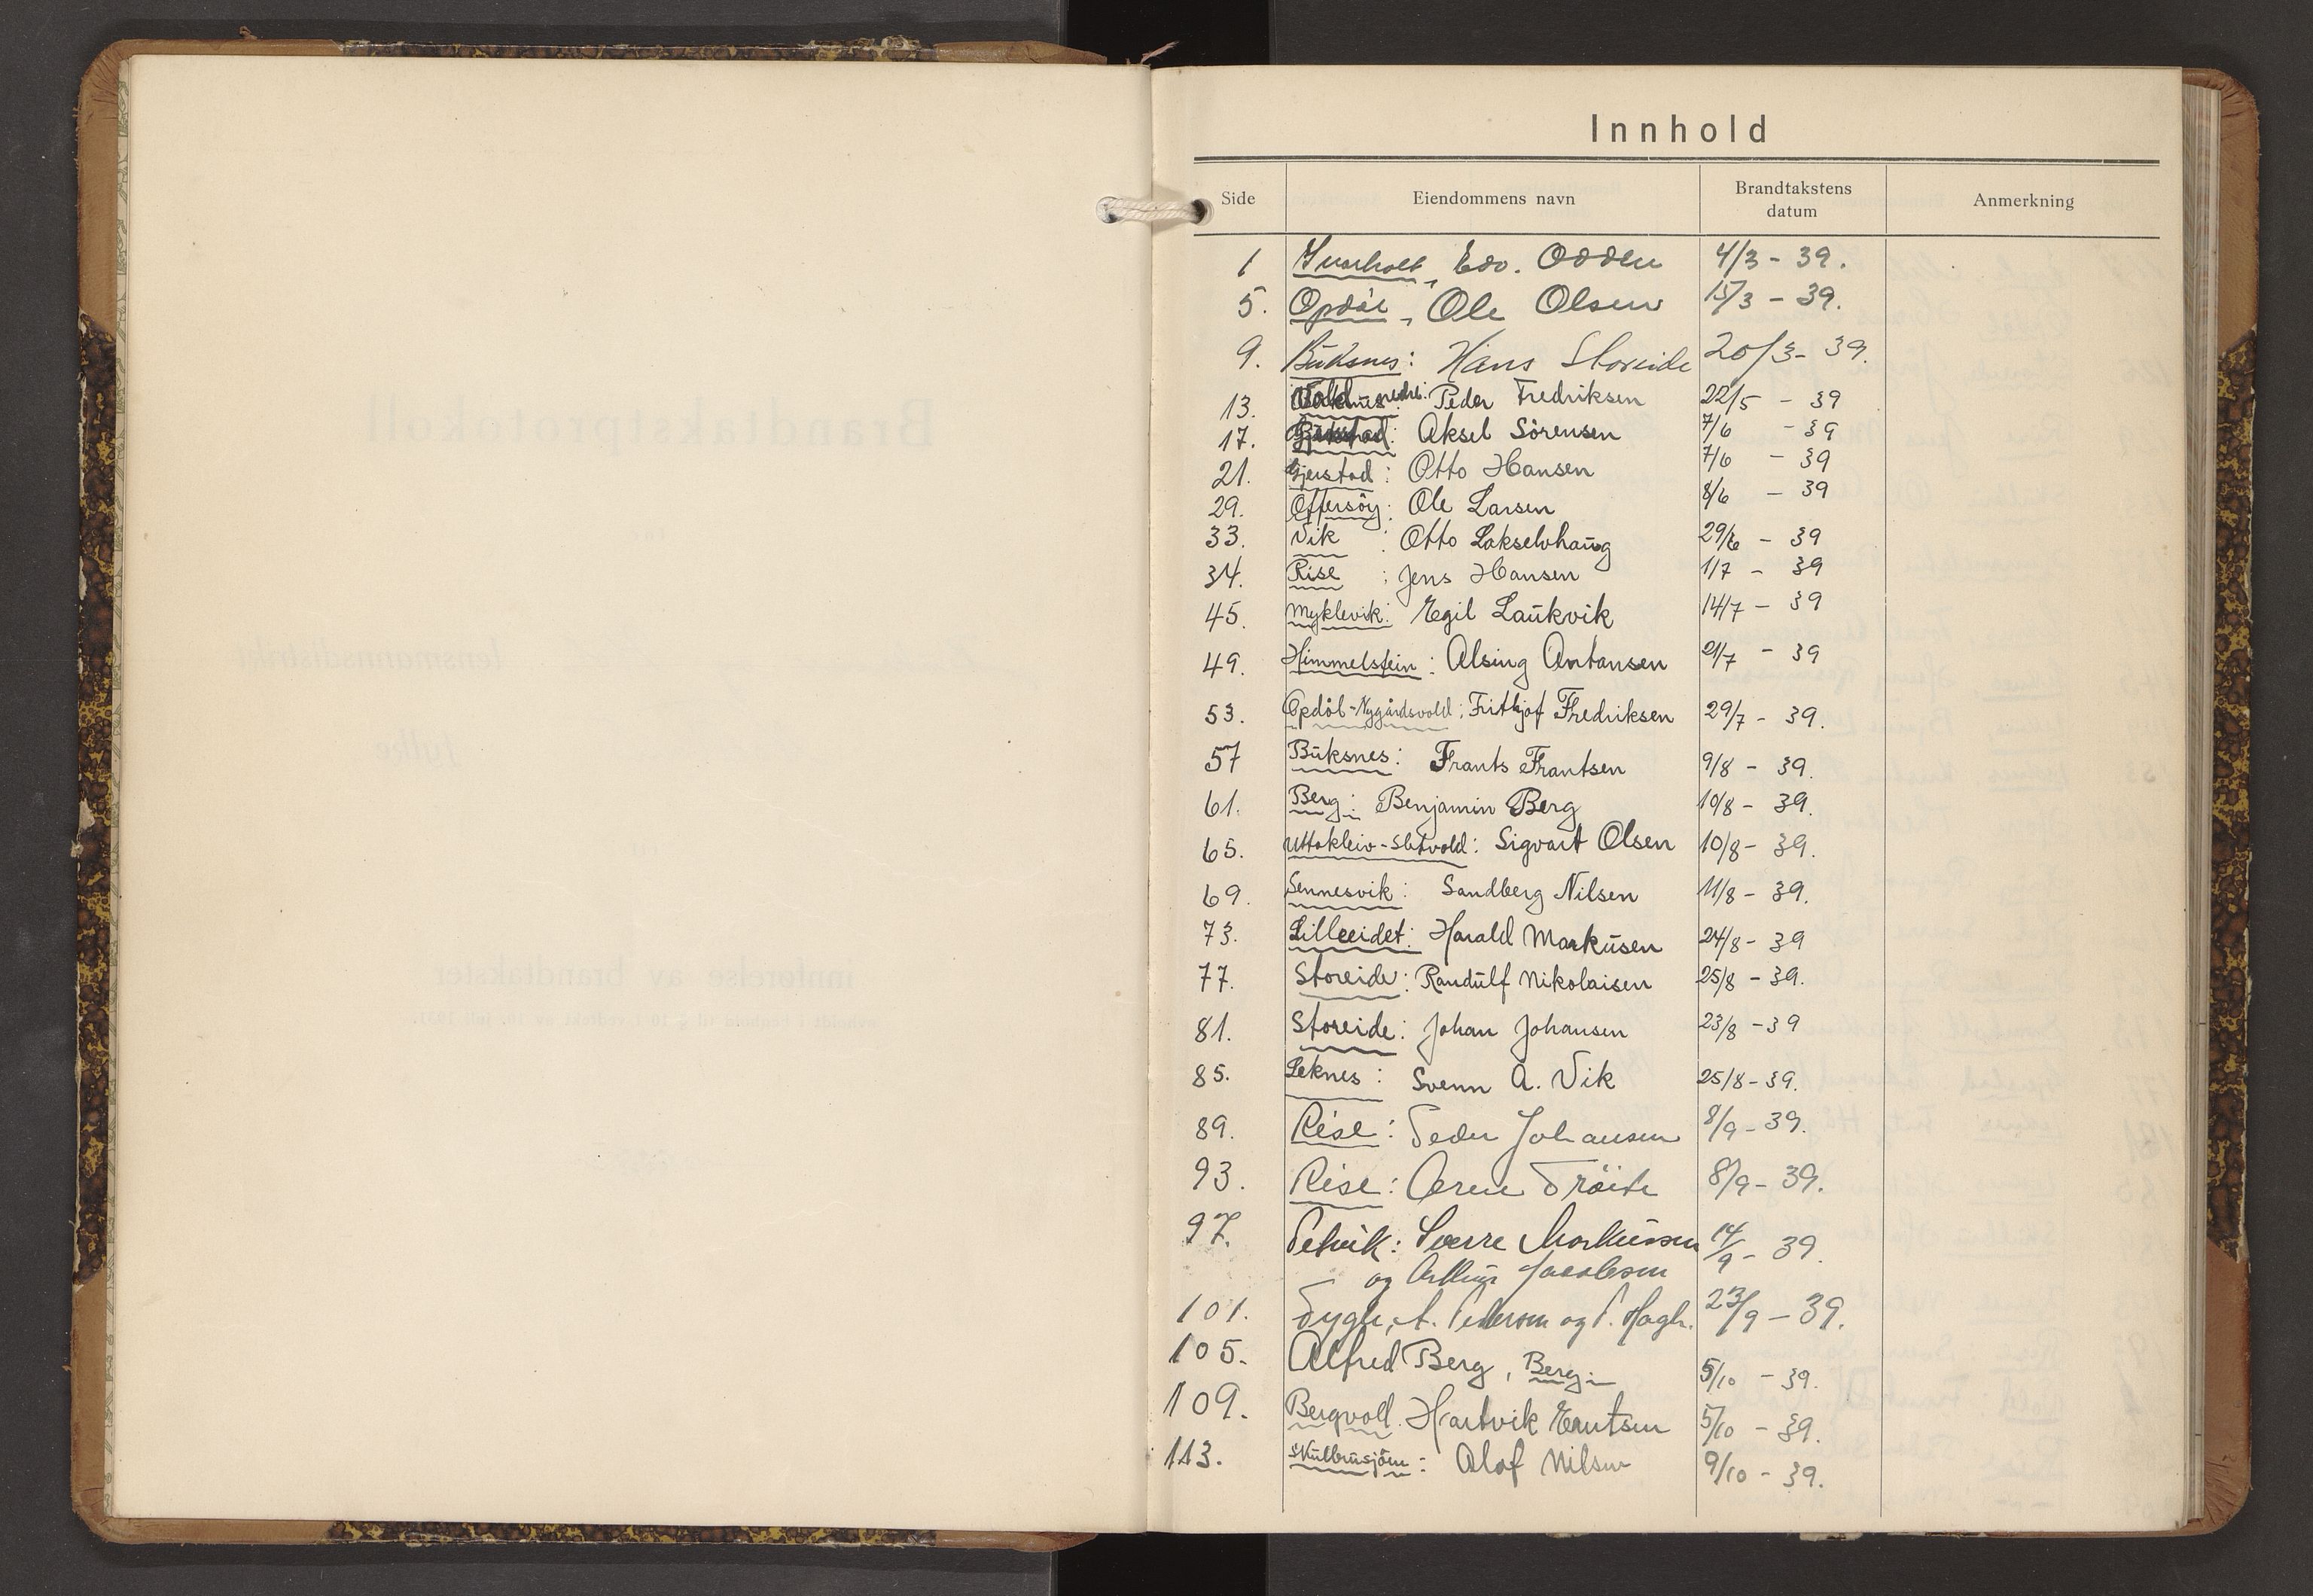 Innhold
Side Eiendommens navn Brandtakstens datum Anmerkning
1 Ivarholt, Edv. Odden 4/3 - 39.
5. Opdöl, Ole Olsen 15/3 - 39.
9. Buksnes: Hans Storeide 20/3 - 39.
13. Vold nedre: Peder Fredriksen 22/5 - 39
17. Aksel Sörensen 7/6 - 39
21. Gjerstad: Otto Hansen 7/6 - 39
29. Offersöy: Ole Larsen 8/6 - 39
33. Vik : Otto Lakselvhaug 29/6 - 39
34. Rise : Jens Hansen 1/7 - 39
45. Myklevik: Egil Laukvik 14/7 - 39
49. Himmelstein: Alsing Antonsen 21/7 - 39
53. Opdöl-Nygårdsvold: Frithjof Fredriksen 29/7 - 39.
57 Buksnes: Frants Frantsen 9/8 - 39.
61. Berg: Benjamin Berg 10/8 - 39.
65. Uttakleiv-Sletvold: Sigvart Olsen 10/8 - 39.
69. Sennesvik: Sandberg Nilsen 11/8 - 39.
73. Lilleeidet: Harald Markusen 24/8 - 39
77. Storeide: Randulf Nikolaisen 25/8 - 39.
81. Storeide: Johan Johansen 23/8 - 39
85. Leknes: Svenn A. Vik 25/8 - 39.
89. Rise: Peder Johansen 8/9 - 39.
93. Rise: Arne Tröite 8/9 - 39.
97. Petvik: Sverre Markussen 14/9 - 39.
og Arthur Jacobsen
101. Tygle, A. Pedersen og P. Hagh. 23/9 - 39.
105. Alfred Berg, Berg 5/10 - 39.
109. Bergvoll. Hartvik Knutsen 5/10 - 39.
113. Skulbrusjöen: Olof Nilsen 9/10 - 39.